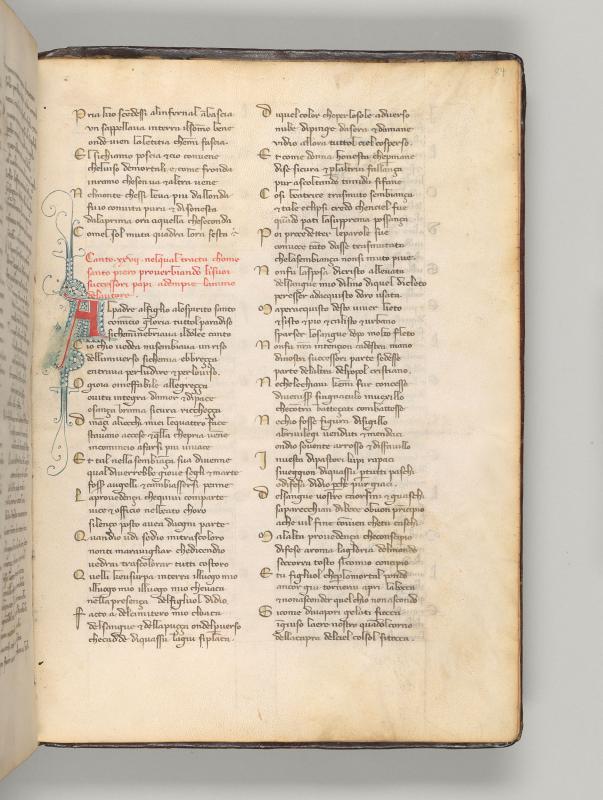 84
Pria luo scedessi alinfernal abascia
un sappellaua interra ilsomo bene
onde uien laletitia chemi fascia.
El sichiamo poscia & cio conuene
cheluso demortali e come fronda
inramo chesenua & altra uene
Nelmonte chessi leua piu dallonda
fuio conuita pura & disonesta
dalaprima ora aquella cheseconda
Come sol muta quadra lora sesta
Canto xxvii nelqual tracta chome
santo piero prouerbiando lisuoi
successori papi adempie lanimo
delautore
Al padre alfiglio alospirito santo
comincio gloria tuttol paradiso
siche minebriaua ildolce canto
Cio chio uedea misembiaua un riso
dellimuerso sichemia ebbreçça
entraua perludire & perlouiso.
O gioia o ineffabile allegreçça
ouita integra damor & dipace
osança brama sicura riccheçça
Dinãçi aliocchi miei lequattro face
stauano accese & qlla chepria uene
incomincio afarsi piu uiuace
Et tal nella sembiãça sua diuenne
qual diuerrebbe gioue segli & marte
fossr augelli & cambiassersi penne
Laprouedença chequiui comparte
uice & officio nelbeato choro
silenço posto auea daogni parte
Quandio udi sedio mitrascoloro
nonti marauigliar chedicendio
uedrai trascolorar tutti costoro
Quelli keusurpa interra illuogo mio
illuogo mio illuogo mio cheuaca
nella presença delfigliuol didio.
Facto a delcimitero mio cloaca
delsangue & dellapuçça ondelpuerso
checadde diquassu lagiu siplaca.
Di quel color cheper losole aduerso
nube dipinge dasera & damane
uidio allora tuttol ciel cosperso.
Et come donna honesta chepmane
dise sicura & plaltrui fallança
pur ascoltando timida sifane
Cosi beatrice trasmuto sembiança
& tale eclipsi credo chenciel fue
quãdo pati lasuprema possança
Poi procedetter leparole sue
conuoce tãto dasse trasmutata
chelasembiança nonsi muto piue
Nonfu lasposa dicristo alleuata
delsangue mio dilino diquel dicleto
peresser adacquisto doro usata.
Ma peracquisto desto uiuer lieto
& sisto & pio & calisto & urbano
sparser losangue dopo molto fleto
Nonfu nra intençion cadestra mano
dinostri successori parte sedesse
parte delaltra delpopol cristiano.
Nechelechiaui kemi fur concesse
diuenissr singnaculo inuexillo
checontra batteçati combattesse
Nechio fosse figura disigillo
apriuilegi uenduti & mendaci
ondio souente arrosso & disfauillo
Inuesta dipastori lupi rapaci
sueggion diquassu ptutti paschi
odifesa didio pche pur giaci.
Delsangue uostro caorsini & guaschi
saparecchian dibere obuon pricipio
ache uil fine conuen chetu caschi
Malalta prouedença checonscipio
difese aroma lagloria delmondo
soccorra tosto sicomio concipio
Et tu figliuol cheplomortal pondo
ancor giu tornerai apri labocca
& nonasconder quel chio nonascondo
Sicome diuapori gelati fiocca
ingiuso laere nostro quãdol corno
dellacapra delciel colsol sitocca.